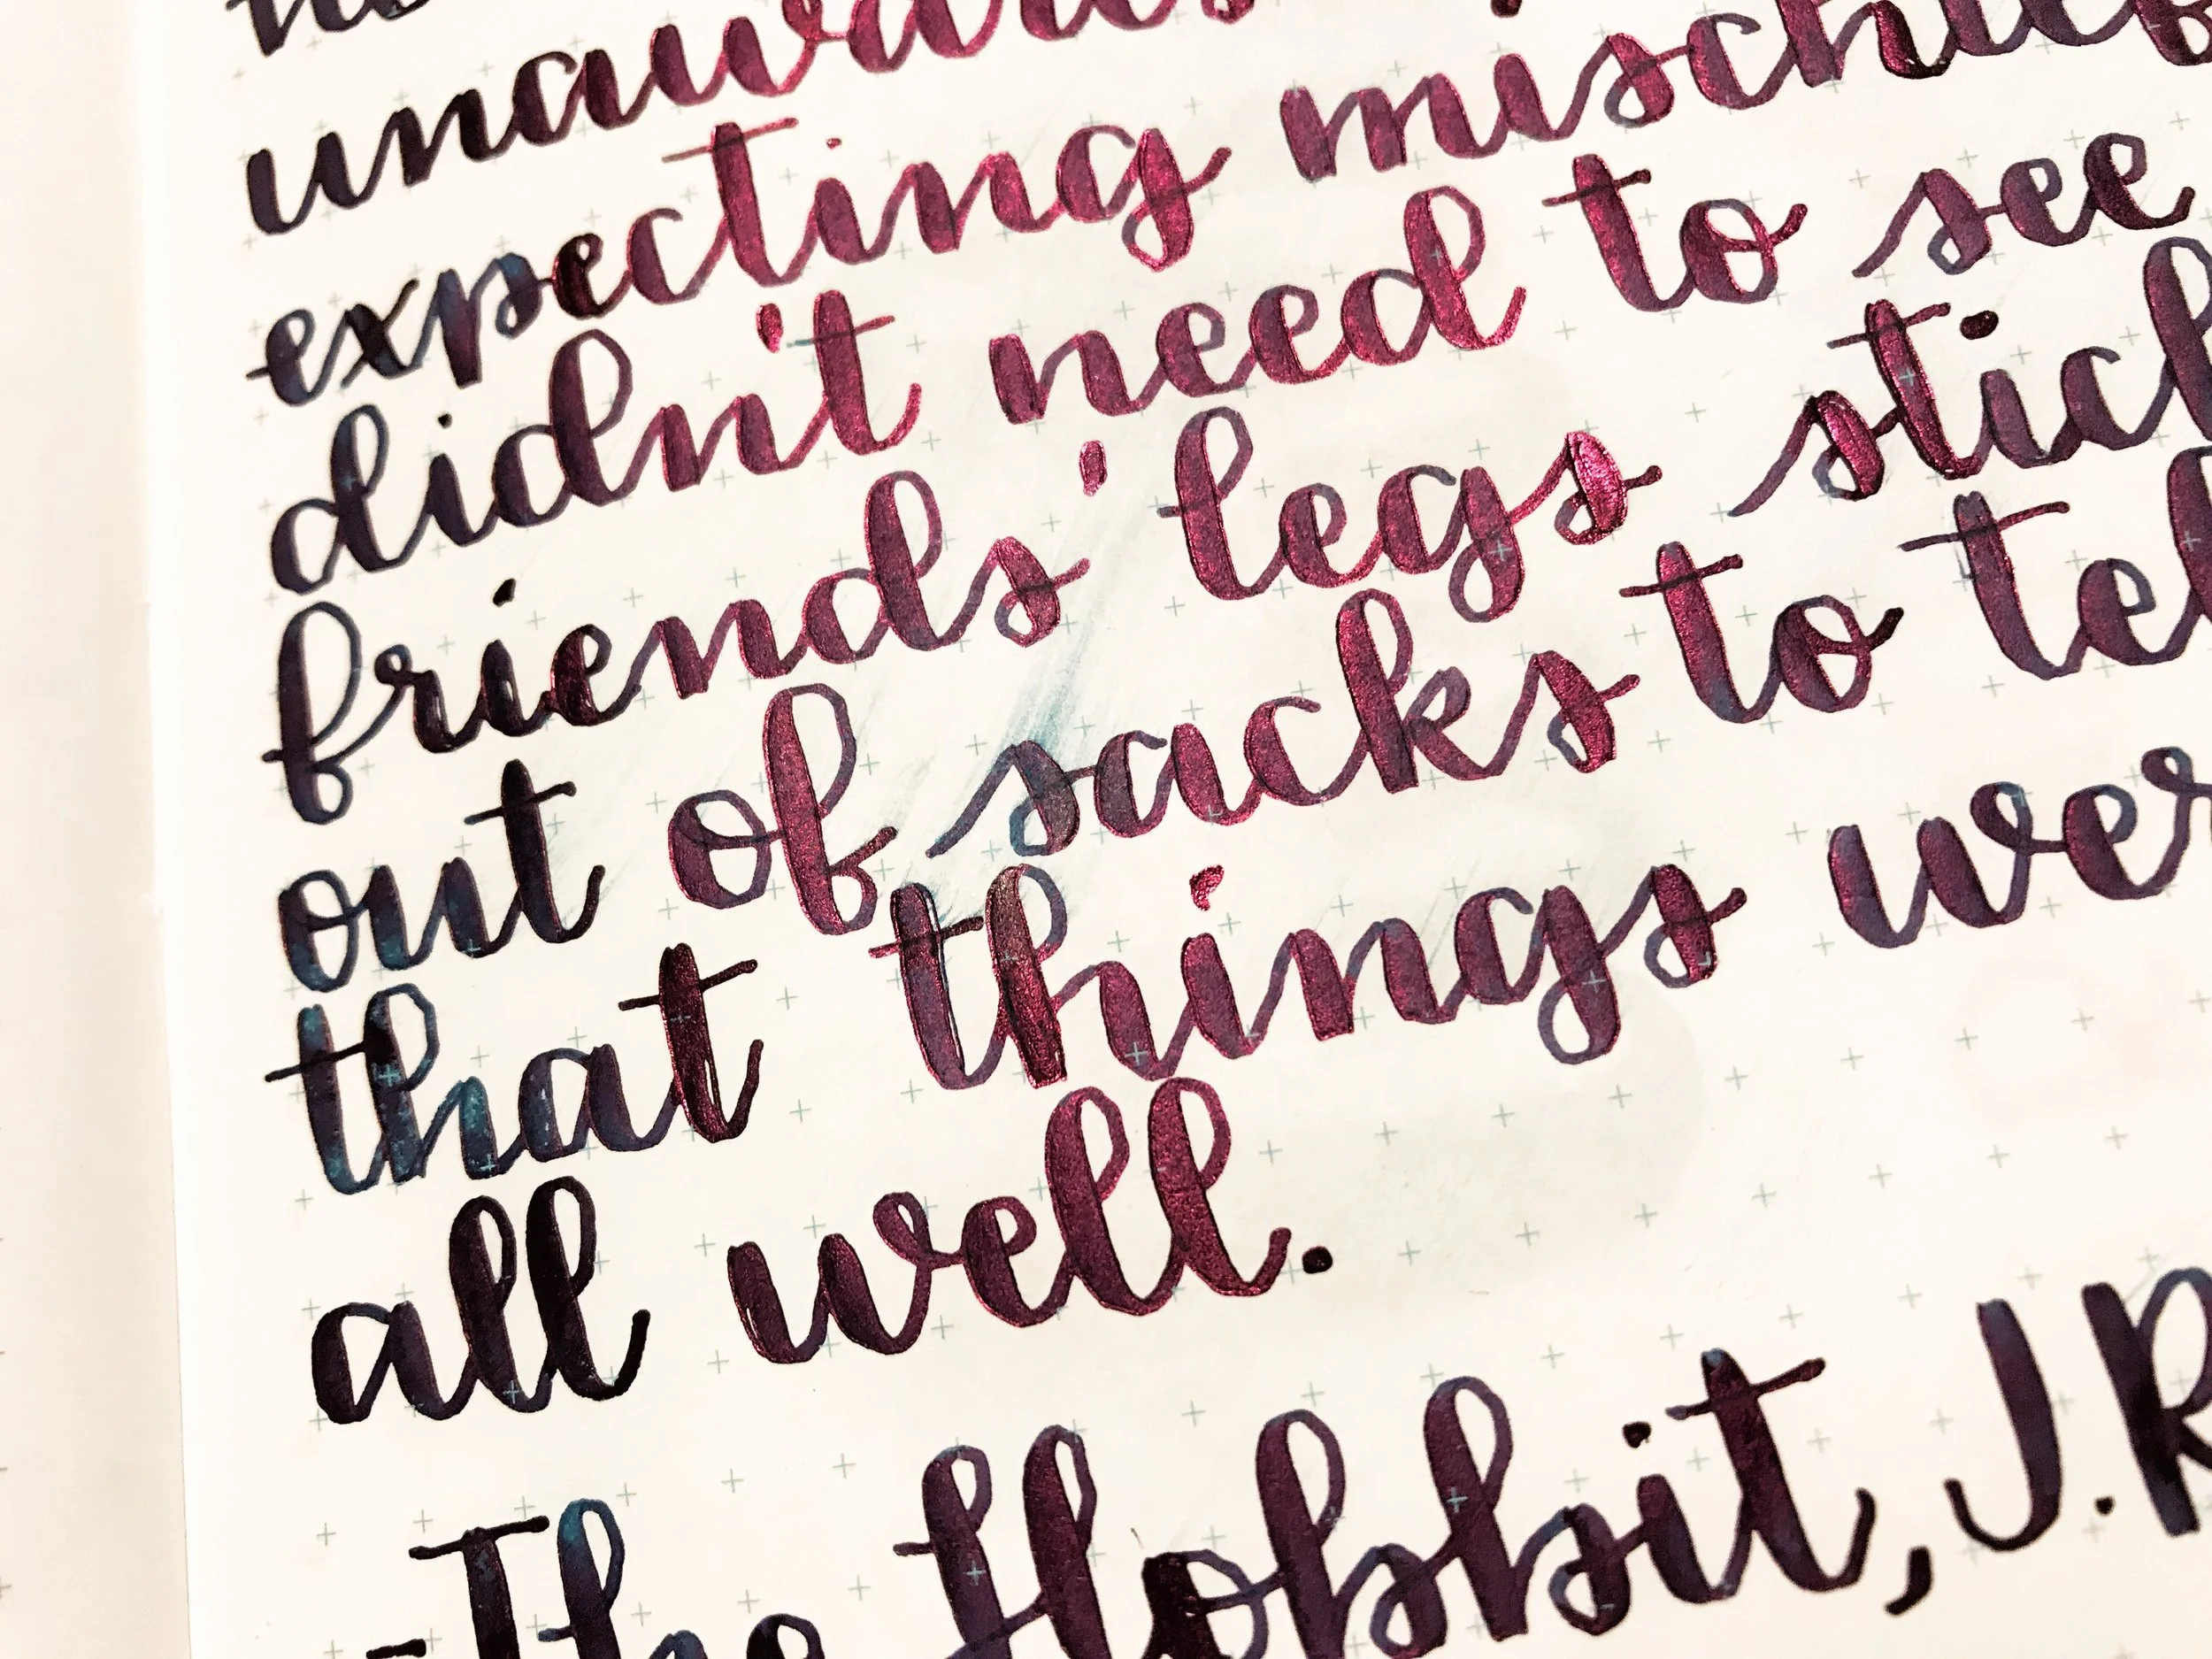 unawares
expecting mischief
didn't need to see
friends' legs stick
out of sacks to tel
that things wer
all well.
-The Hobbit, J.R